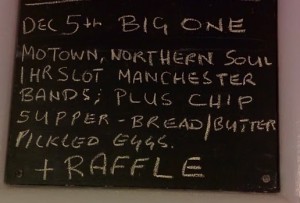 DEC 5TH BIG ONE
MOTOWN, NORTHERN SOUL
1HR SLOT MANCHESTER
BANDS; PLUS CHIP
SUPPER - BREAD/BUTTER
PICKLED EGGS.
+ RAFFLE